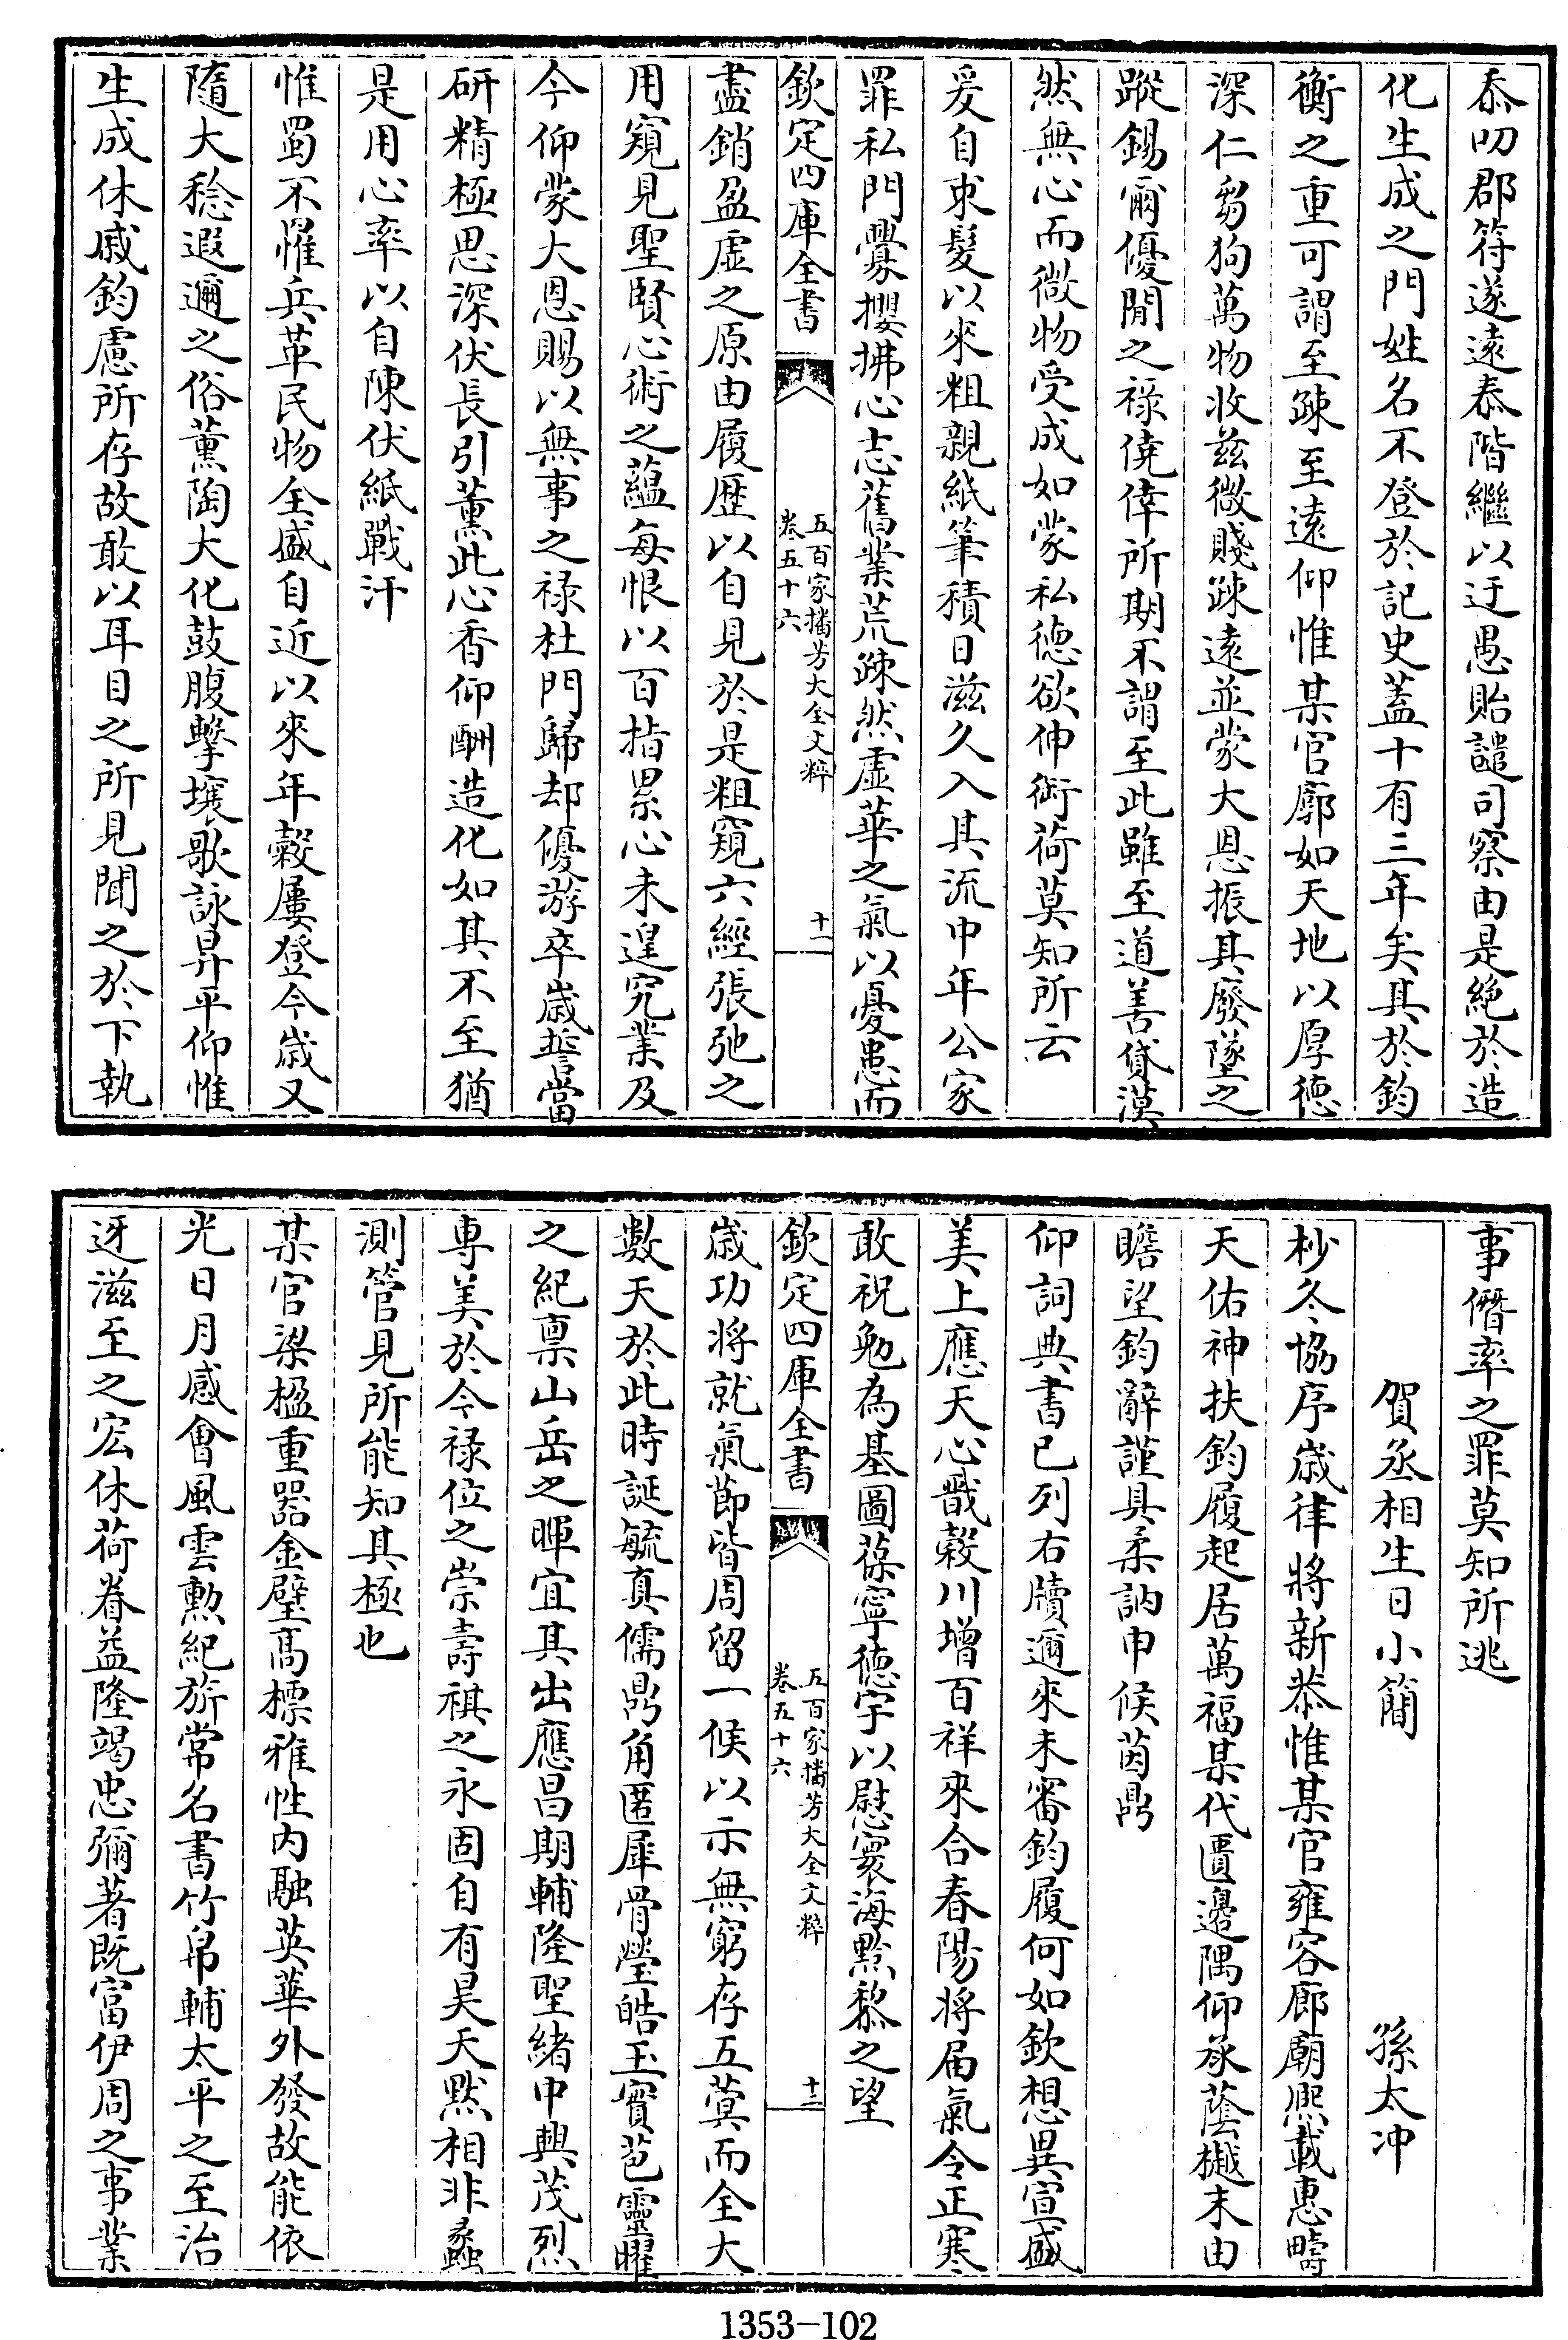 忝叨郡符遂遠泰階繼以迂愚貽譴司察由是絶於造
化生成之門姓名不登於記史蓋十有三年矣其於鈞
衡之重可謂至疎至遠仰惟某官廓如天地以厚德
深仁芻狗萬物收兹微賤疎遠並蒙大恩振其廢墜之
蹤錫爾優閒之禄僥倖所期不謂至此雖至道善貸漠
然無心而微物受成如蒙私德欲伸銜荷莫知所云
爰自束髮以來粗親紙筆積日滋久入其流中年公家
罪私門釁攖拂心志舊業荒疎然虛華之氣以憂患而
欽定四庫全書
五百家播芳大全文粹
卷五十六
十一
盡銷盈虚之原由履歷以自見於是粗窺六經張弛之
用窺見聖賢心術之蘊每恨以百指累心未遑究業及
今仰蒙大恩賜以無事之禄杜門歸却優游卒歲誓當
研精極思深伏長引薰此心香仰酬造化如其不至猶
是用心率以自陳伏紙戰汗
惟蜀不罹兵革民物全盛自近以來年穀屢登今歲又
隨大稔遐邇之俗薰陶大化鼓腹擊壤歌詠昇平仰惟
生成休戚鈞慮所存故敢以耳目之所見聞之於下執
事僭率之罪莫知所逃
賀丞相生日小簡
孫太冲
杪冬協序歲律將新恭惟某官雍容廊廟熙載惠疇
天佑神扶鈞履起居萬福某代匱邊隅仰承蔭樾末由
瞻望鈞辭謹具柔訥申候茵鼎
仰詞典書已列右牘邇來未審鈞履何如欽想異宣盛
美上應天心戬穀川增百祥來合春陽將届氣令正寒
敢祝勉為基圖葆寧德宇以慰寰海黔黎之望
欽定四庫全書
五百家播芳大全文粹
卷五十六
十二
歲功將就氣節皆周留一候以示無窮存五蓂而全大
數天於此時誕毓真儒鼎角匿犀骨瑩皓玉實苞靈曜
之紀禀山岳之暉宜其出應昌期輔隆聖緒中興茂烈
專美於今禄位之崇壽祺之永固自有昊天黙相非蠡
測管見所能知其極也
某官梁楹重器金璧髙標雅性内融英華外發故能依
光日月感會風雲勲紀旂常名書竹帛輔太平之至治
迓滋至之宏休荷眷益隆竭忠彌著既富伊周之事業
1353-102